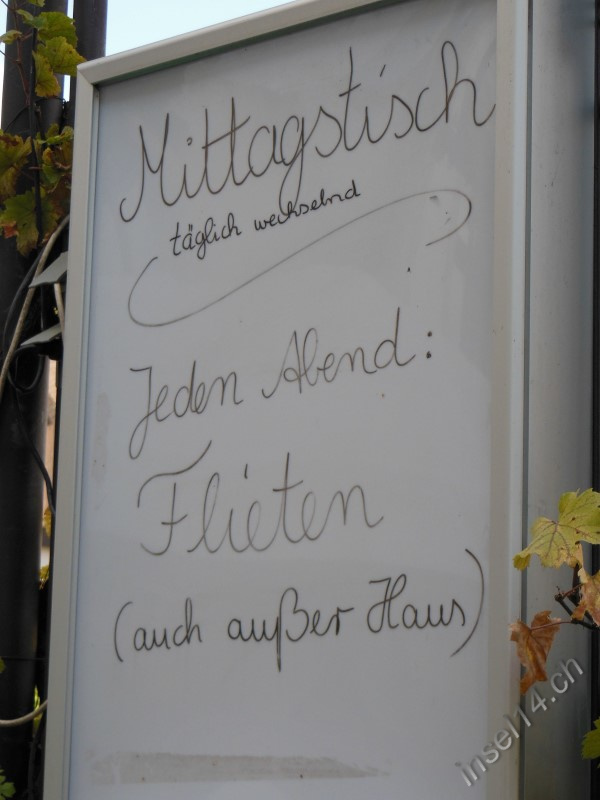 Mittagstisch
täglich wechselnd
Jeden Abend:
Flieten
(auch außer Haus)
insel14.ch